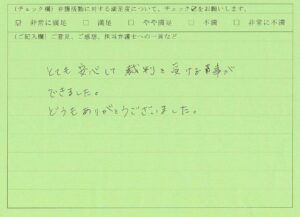 (チェック欄) 弁護活動に対する満足度について、チェック☑をお願いします。
☑ 非常に満足 □ 満足 □ やや満足 □ 不満 □ 非常に不満
(ご記入欄) ご意見、ご感想、担当弁護士への一言など
とても安心して裁判を受ける事が
できました。
どうもありがとうございました。